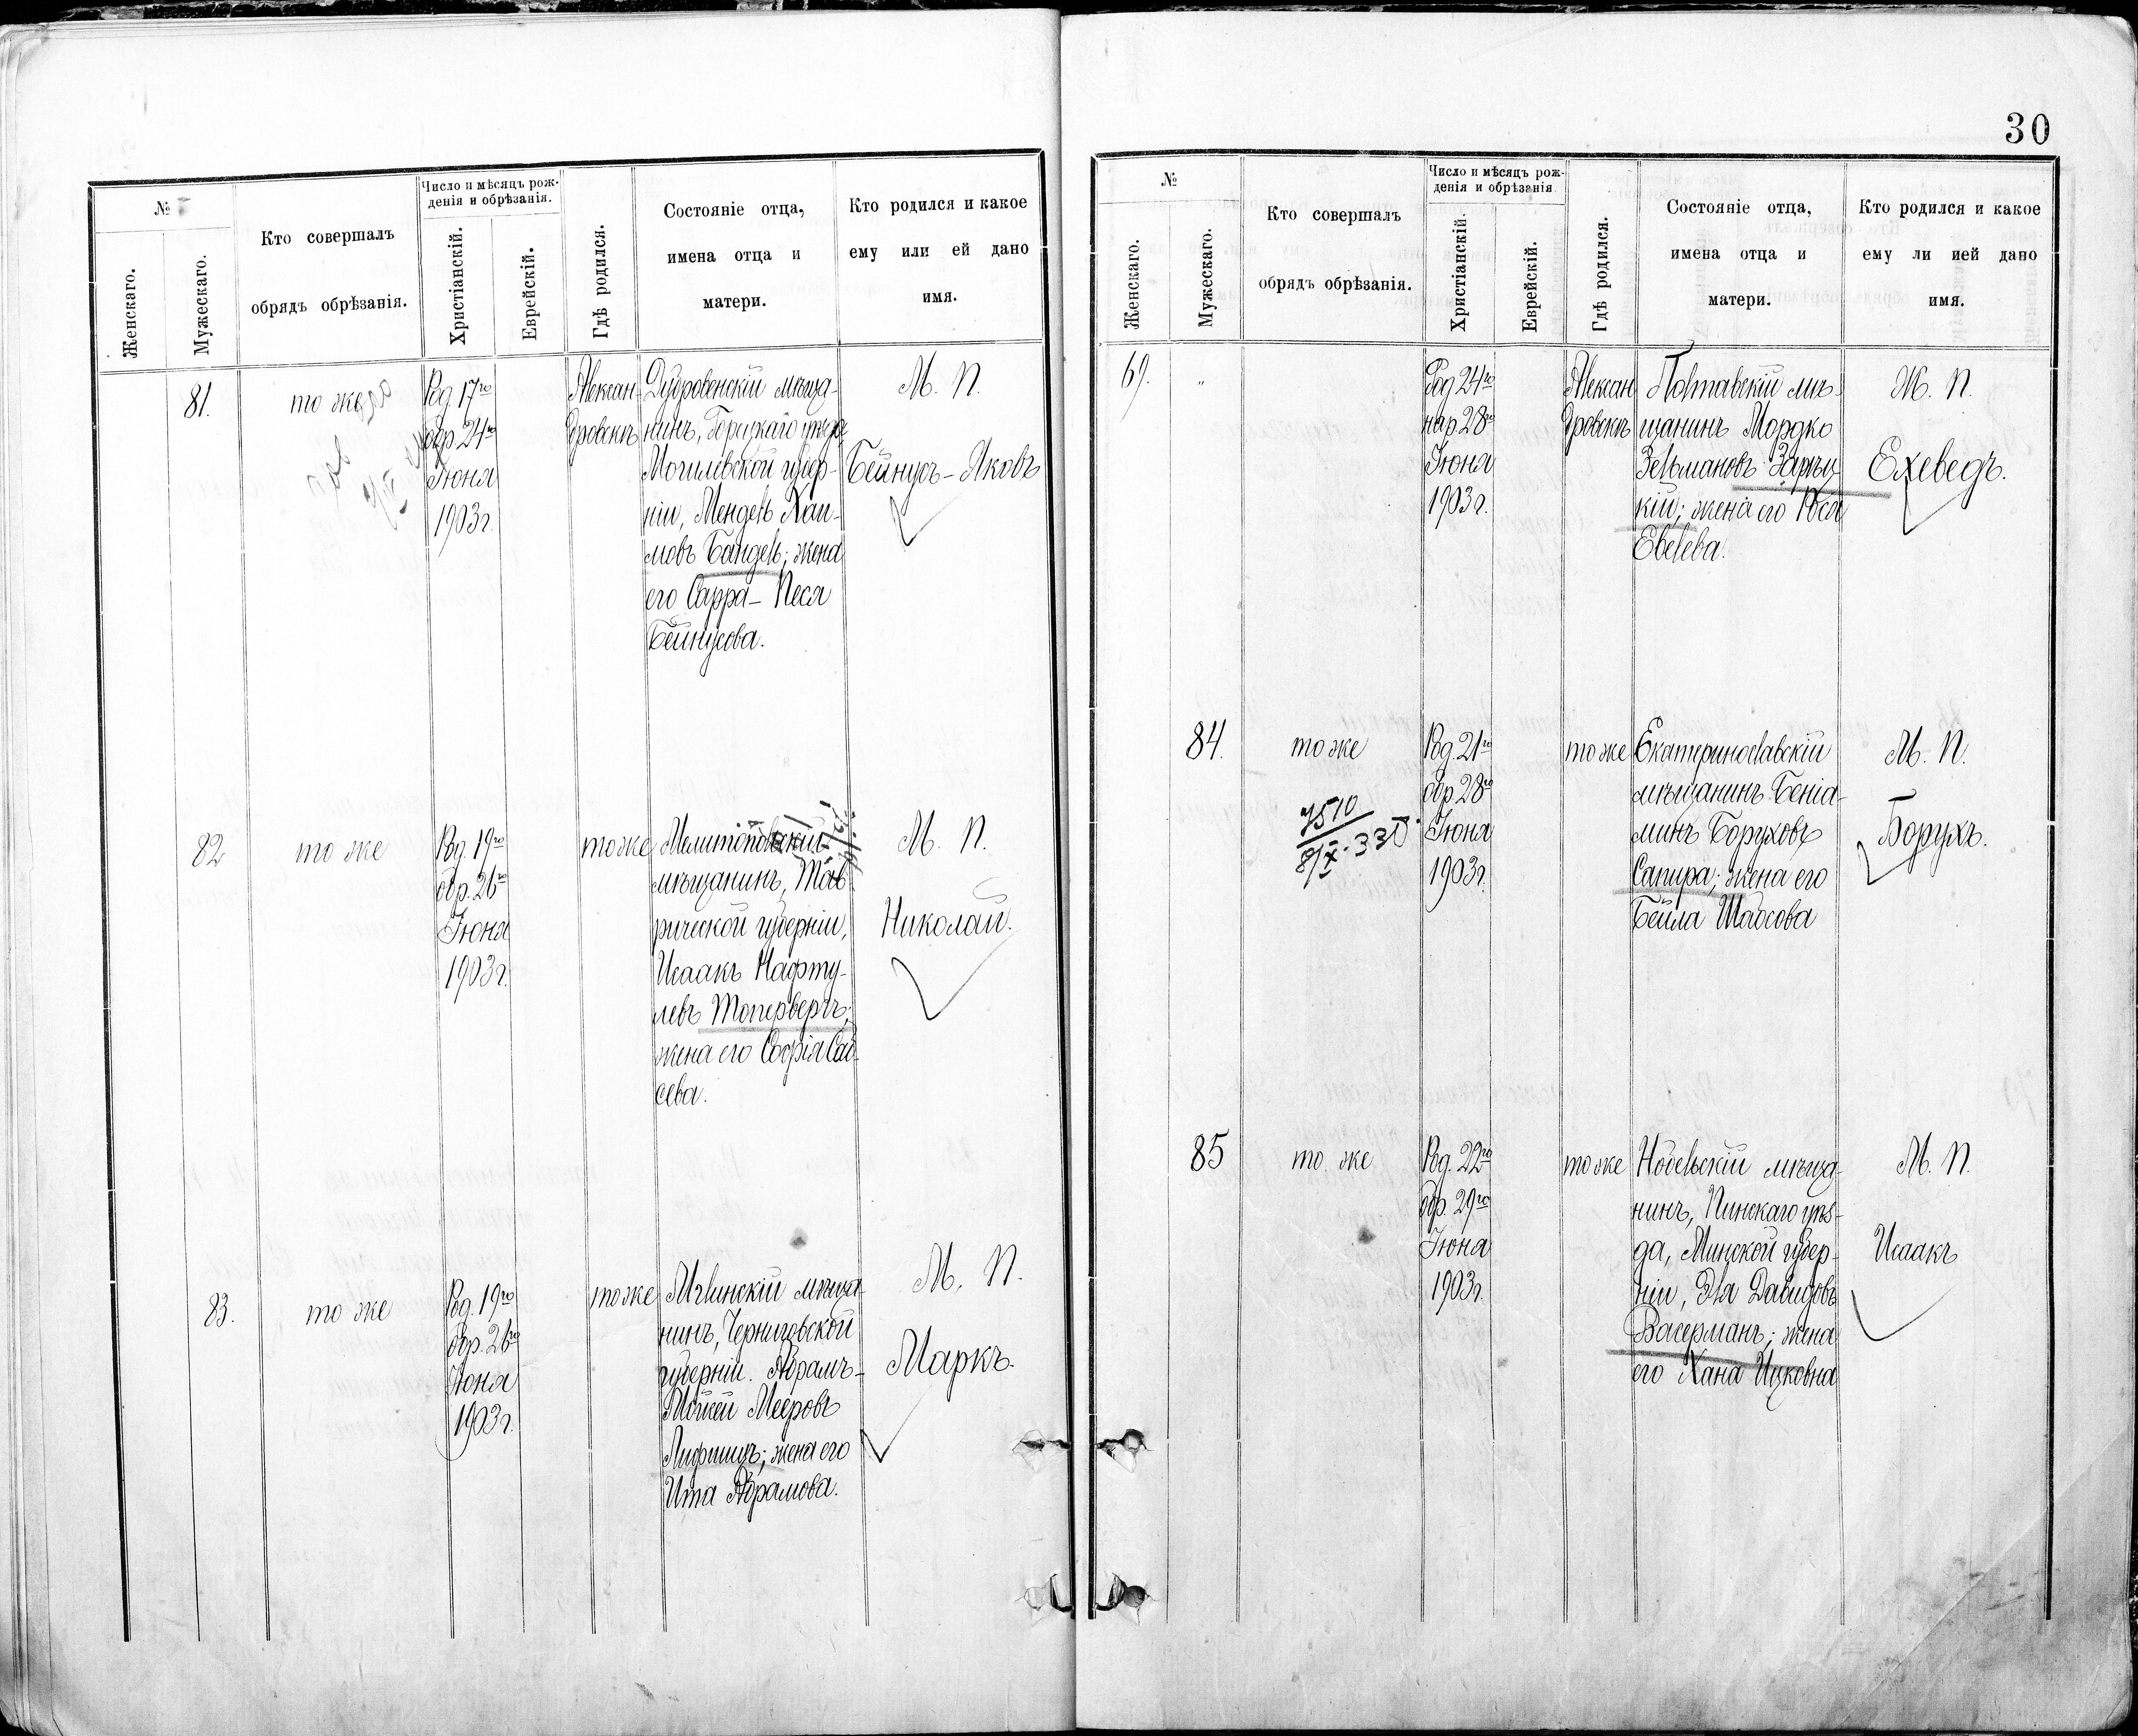 №
Женскаго.
Мужескаго.
Кто совершалъ
обрядъ обрѣзанія.
Число и мѣсяцъ рож-
денія и обрѣзанія.
Христіанскій.
Еврейскій.
Гдѣ родился.
Состояніе отца,
имена отца и
матери.
Кто родился и какое
ему или ей дано
имя.
81.
то же
Род. 17го
обр. 24го
Іюня
1903 г.
Александровскъ
Дубровенскій мѣща-
нинъ, Горицкаго уѣзда
Могилевской губер-
ніи, Мендель Хаи-
мовъ Бандель; жена
его Сарра-Песя
Бейнусова.
М. П.
Бейнусъ-Яковъ
82
то же
Род. 19го
обр. 26го
Іюня
1903 г.
то же
Мелитопольскій
мѣщанинъ, Тав
рической губерніи,
Исаакъ Нафту-
левъ Топерверхъ;
жена его Софія Сав-
сева.
М. П.
Николай.
83.
то же
Род. 19го
обр. 26го
Іюня
1903 г.
то же
Мглинскій мѣща-
нинъ, Черниговской
губерніи. Абрамъ-
Мойсей Мееровъ
Лифшицъ; жена его
Ита Абрамова.
М. П.
Маркъ.
30
№
Женскаго.
Мужескаго.
Кто совершалъ
обрядъ обрѣзанія.
Число и мѣсяцъ рож-
денія и обрѣзанія
Христіанскій.
Еврейскій.
Гдѣ родился.
Состояніе отца,
имена отца и
матери.
Кто родился и какое
ему ли ией дано
имя.
69.
"
Род 24го
нар 28го
Іюня
1903 г.
Александровскъ
Полтавскій мѣ-
щанинъ Мордко
Зельмановъ Зарѣц-
кій; жена его Рося
Евелева.
Ж. П.
Ехеведъ.
84.
то же
7510
8/X-33
Род. 21го
обр. 28го
Іюня
1903 г.
то же
Екатеринославскій
мѣщанинъ Беніа-
минъ Боруховъ
Сапира; жена его
Бейла Шабсова
М. П.
Борухъ.
85
то же
Род. 22го
обр. 29го
Іюня
1903 г.
то же
Нобельскій мѣща-
нинъ, Пинскаго уѣз-
да, Минской губер-
ніи, Эля Давидовъ
Васерманъ; жена
его Хана Ицковна
М. П.
Исаакъ